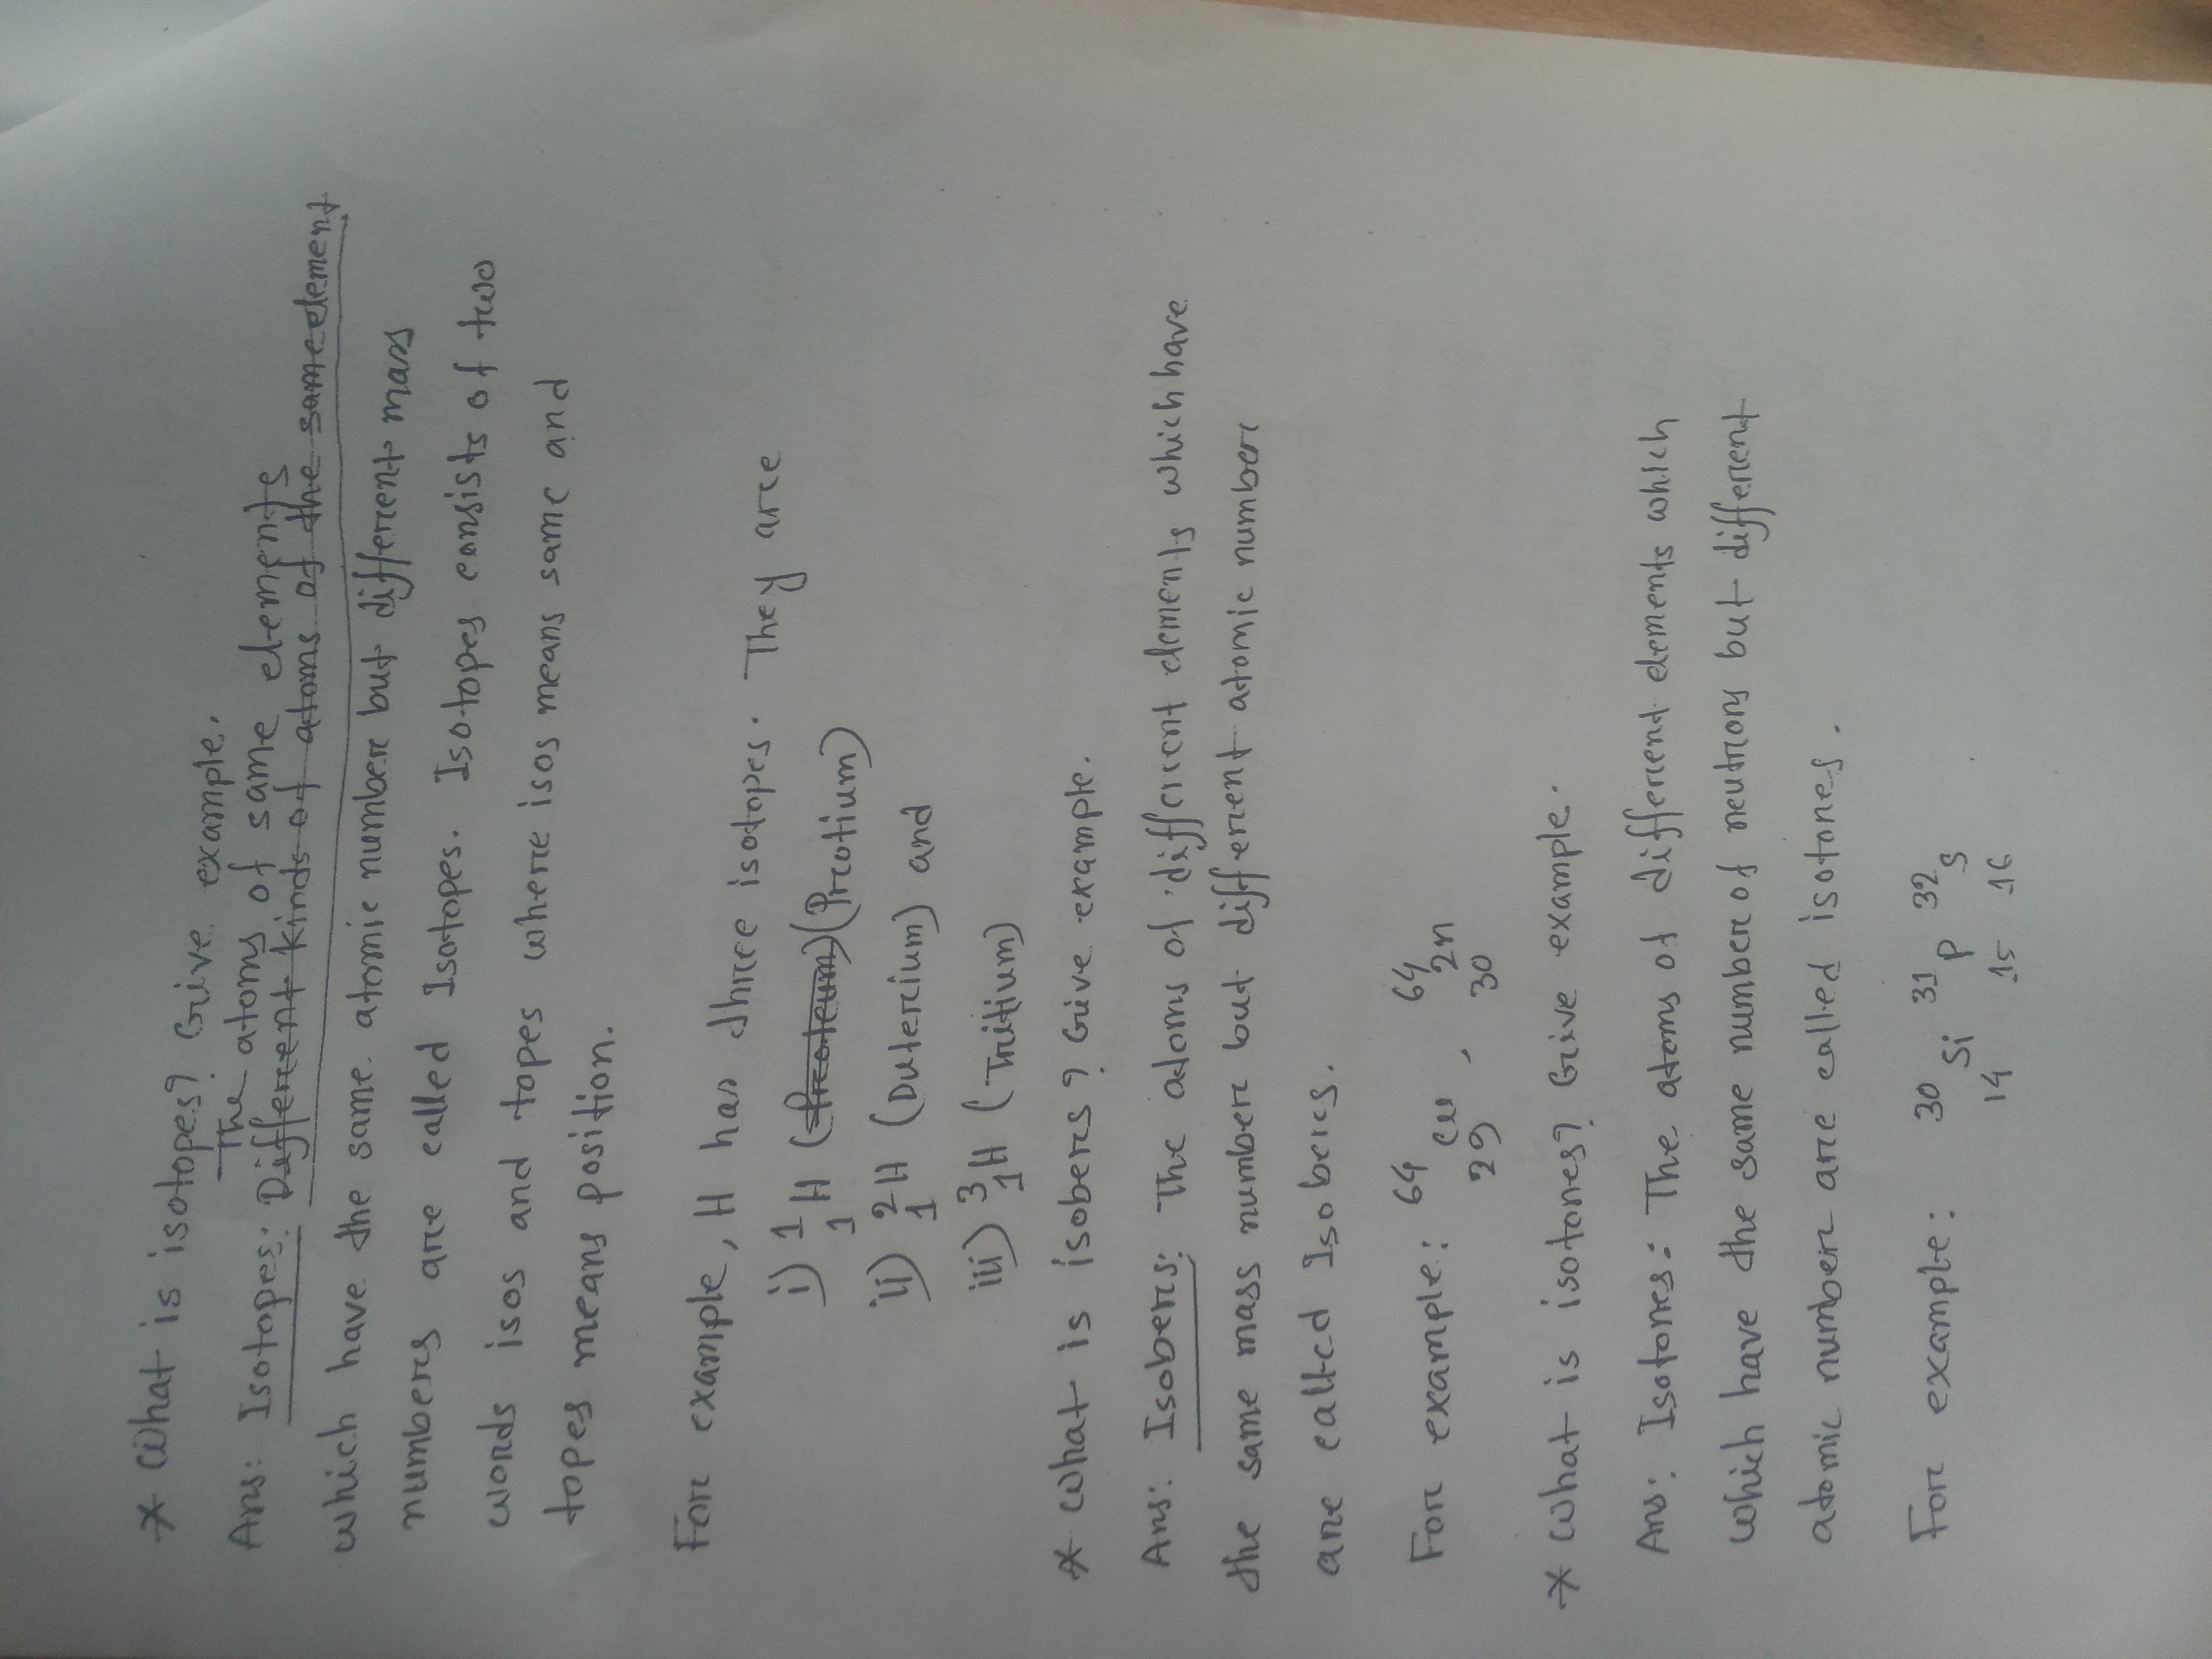 * What is isotopes? Give example.
The atoms of same elements
Ans: Isotopes: Different kinds of atoms of the same element
which have the same atomic number but different mass
numbers are called Isotopes. Isotopes consists of two
words isos and topes where isos means same and
topes means position.
For example, H has three isotopes. They are
i) ¹₁H (Proteum) (Protium)
ii) ²₁H (Duterium) and
iii) ³₁H (Tritium)
* What is isobers? Give example.
Ans: Isobers: The atoms of different elements which have
the same mass number but different atomic number
are called Isobers.
For example: ⁶⁴₂₉Cu , ⁶⁴₃₀Zn
* What is isotones? Give example.
Ans: Isotones: The atoms of different elements which
which have the same number of neutrons but different
atomic number are called isotones.
For example: ³⁰₁₄Si ³¹₁₅P ³²₁₆S